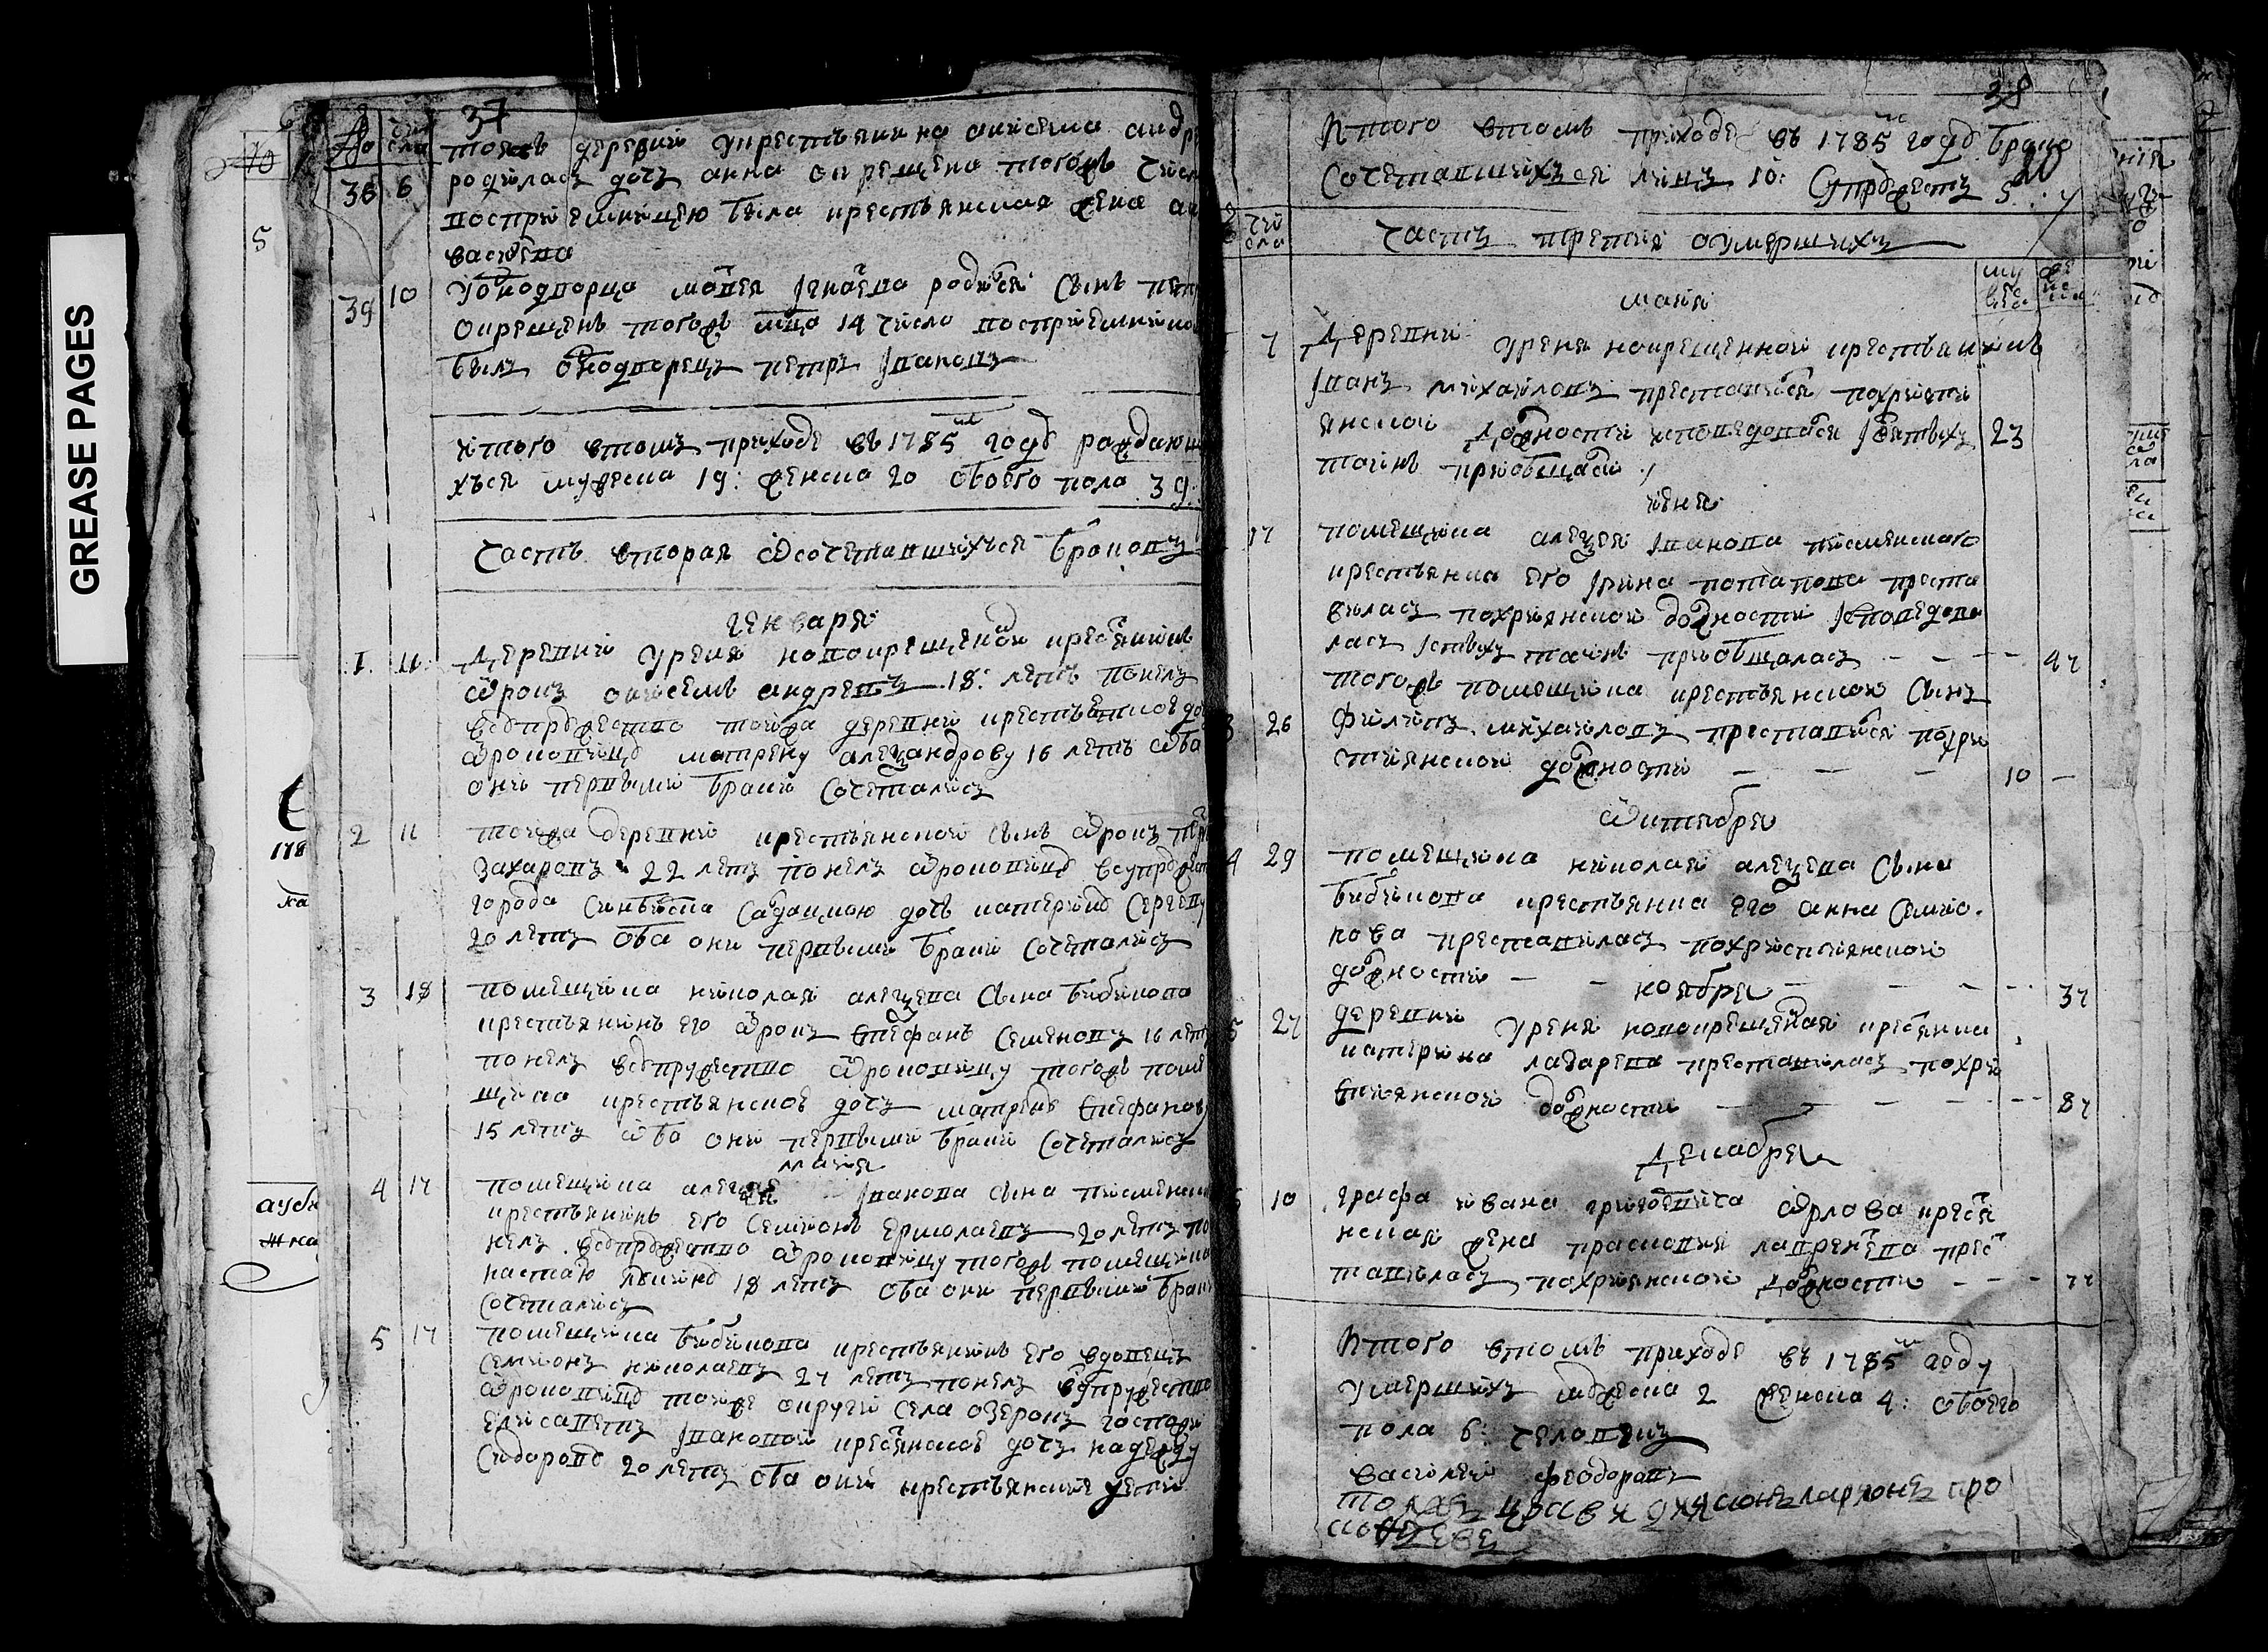 GREASE PAGES
37
тоежъ деревни укрестьянина анисема андр
38 6 родилась дочь анна окрещена тогожъ числ
восприемницею была крестьянская жена
васиева
39 10 У однодворца мойсея игнатева родися сынъ петр
окрещенъ тогожъ мца 14 числа восприемником
былъ однодворецъ петръ Iвановъ
итого втомъ приходе въ 1785м году раждающи
хъся мужеска 19: женска 20 обоего пола 39:
часть вторая осочетавшихъся браковъ
генваря
1. 11. деревни урени новокрещеной крестьянинъ
отрокъ анисемъ андреевъ 18: летъ понелъ
всупружество тоижа деревни крестьянскоедо
отроковицу матрену алеѯандрову 16 летъ оба
они первымъ бракомъ сочетались
2 11 тоижа деревни крестьянской сынъ отрокъ
захаровъ 22 летъ понелъ отроковицу всупружест
города синбирска солдацкою дочь катерину сергеву
20 летъ оба они первымъ бракомъ сочетались
3 18 помещика николая алеѯева сына бибикова
крестьянинъ его отрокъ стефанъ семеновъ 16 летъ
понелъ всупружество отроковицу тогожъ поме
щика крестьянскою дочь матрену стефанову
15 летъ оба они первымъ бракомъ сочетались
маия
4 17 помещика алеѯея Iванова сына писменска
крестьянинъ его семионъ ермолаевъ 20 летъ по
нелъ всупружество отроковицу тогожъ помещика
настасю 18 летъ оба они первымъ брак
сочетались
5 17 помещика бибикова крестьянинъ его вдовецъ
семионъ николаевъ 27 летъ понелъ всупружество
отроковицу тоиже округи села озерокъ госпожи
елисаветы Iвановой крестьянскою дочь надежду
сидорову 20 летъ оба они крестьянские дети
38
Итого втомъ приходе въ 1785м году брако
сочетавшихъся лицъ 10: супружествъ 5
числа
часть третия оумершихъ
маия
7 Деревни урени новокрещенной крестьянинъ
Iванъ михайловъ преставися похристи
янской должности исповедовася Iсвятыхъ 23
таинъ приобщася
июня
17 помещика алеѯея Iванова писменского
крестьянка его Iрина потапова преста
вилась похриянской должности Iсповедова
лась Iстыхъ таинъ приобщалась - - - 47
26 тогожъ помещика крестьянской сынъ
филипъ михаиловъ преставися похри
стиянской должности — — — 10 —
октебря
4 29 помещика николая алеѯева сына
бибикова крестьянка его анна семио.
нова преставилась похристиянской
должности — - - - - 37
ноября
27 деревни урени новокрещеная крестьянка
катерина лазарева преставилась похри
стиянской должности — — — 87
декабря
10 графа ивана григоревича орлова крестья
нская жена прасковия лаврентева прес
тавилась похриянской должности - - - 77
Итого втомъ приходе въ 1785м году
умершихъ мужеска 2 женска 4: обоего
пола 6: человекъ
василей феодоровъ